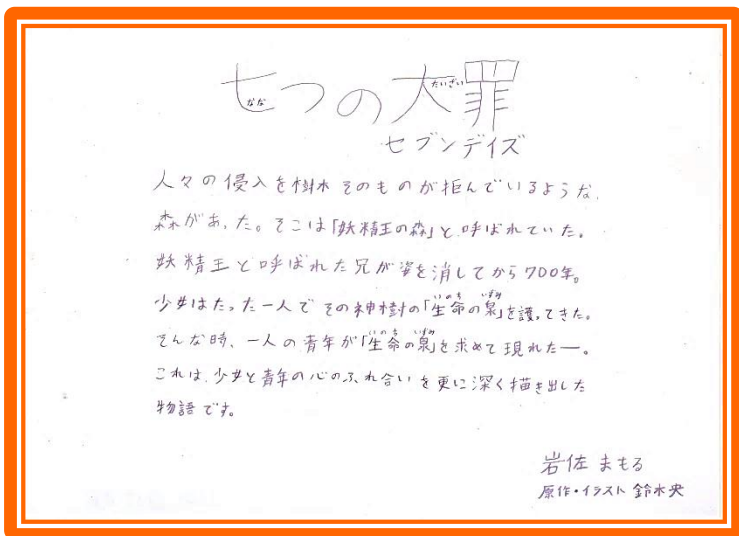 七つの大罪
なな たいざい
セブンデイズ
人々の侵入を樹木そのものが拒んでいるような、
森があった。そこは「妖精王の森」と呼ばれていた。
妖精王と呼ばれた兄が姿を消してから700年。
いのち いずみ
少女はたった一人でその神樹の「生命の泉」を護ってきた。
いのち いずみ
そんな時、一人の青年が「生命の泉」を求めて現れた―。
これは、少女と青年の心のふれ合いを更に深く描き出した
物語です。
岩佐まもる
原作・イラスト 鈴木央